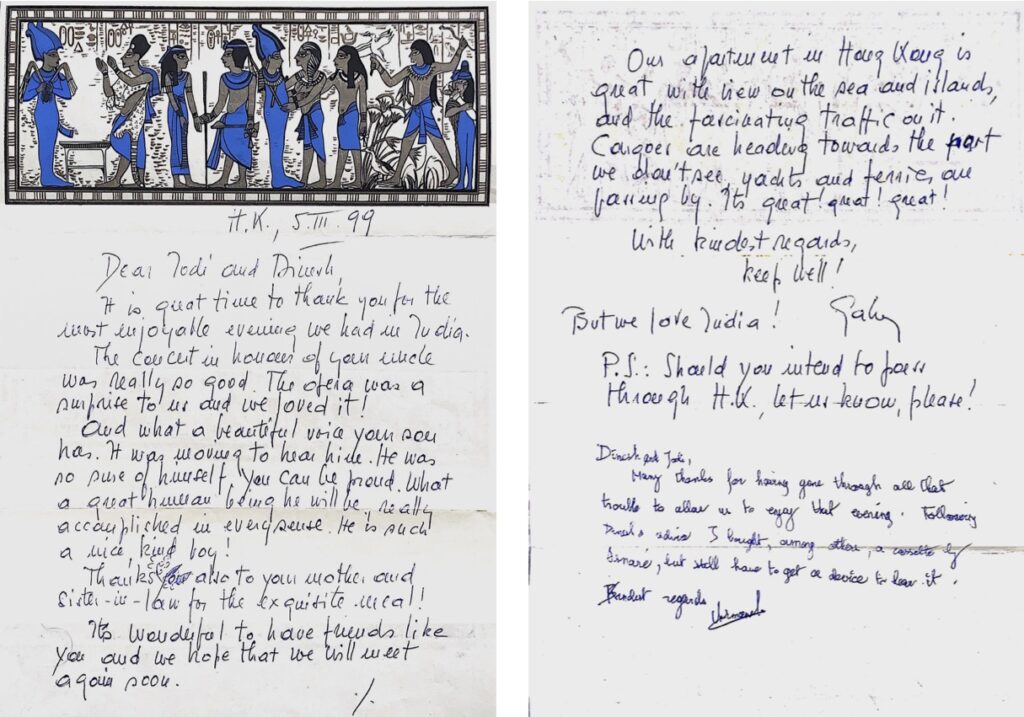 H.K., 5.III.99
Dear Jodi and Dinesh,
It is great time to thank you for the
most enjoyable evening we had in India.
The concert in honour of your uncle
was really so good. The opera was a
surprise to us and we loved it!
And what a beautiful voice your son
has. It was moving to hear him. He was
so sure of himself. You can be proud. What
a great human being he will be, really
accomplished in every sense. He is such
a nice, kind boy!
Thanks also to your mother and
sister-in-law for the exquisite meal!
It's wonderful to have friends like
you and we hope that we will meet
again soon.
./.
Our apartment in Hong Kong is
great with view on the sea and islands,
and the fascinating traffic on it.
Cargoes are heading towards the port
we don't see, yachts and ferries are
passing by. It's great! great! great!
With kindest regards,
keep well!
But we love India!
P.S.: Should you intend to pass
through H.K., let us know, please!
Dinesh and Jodi,
Many thanks for having gone through all that
trouble to allow us to enjoy that evening. Following
Dinesh's advice I bought, among others, a cassette by
but still have to get a device to hear it.
Kindest regards